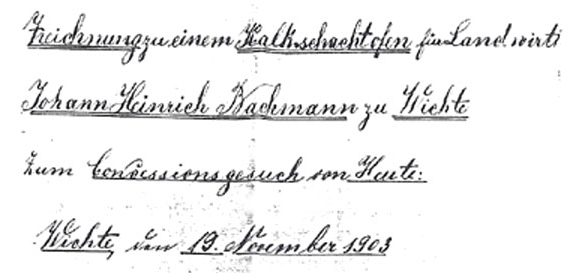 Zeichnung zu einem Kalkschachtofen für Landwirt
Johann Heinrich Nachmann zu Wichte
Zum Concessionsgesuch von Heute:
Wichte, den 19. November 1903